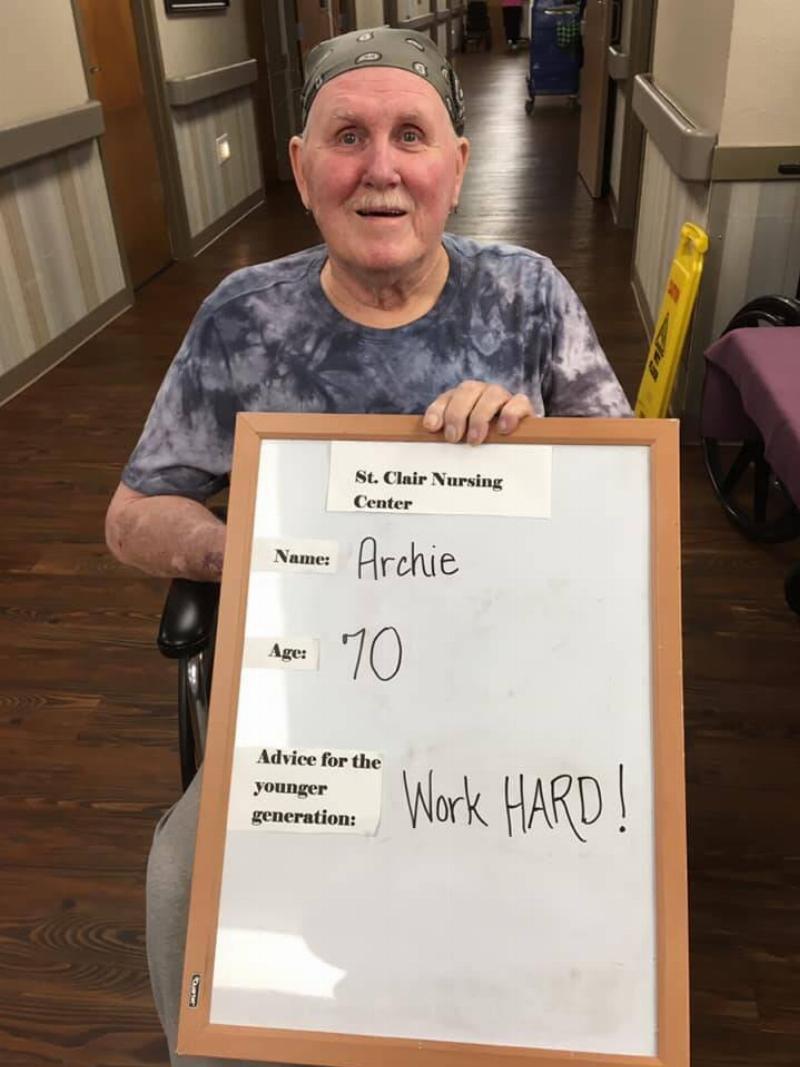 St. Clair Nursing
Center
Name: Archie
Age: 70
Advice for the
younger
generation:
Work HARD!